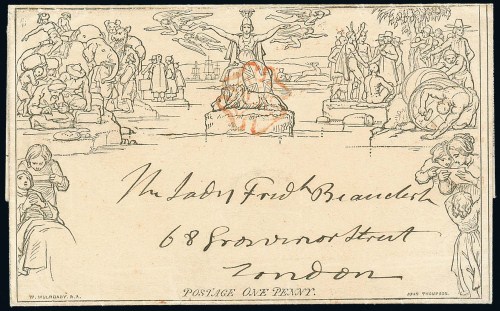 The Lady Fredk Beauclerk
68 Grosvenor Street
London
POSTAGE ONE PENNY.
W. MULREADY. R.A.
JOHN THOMPSON.